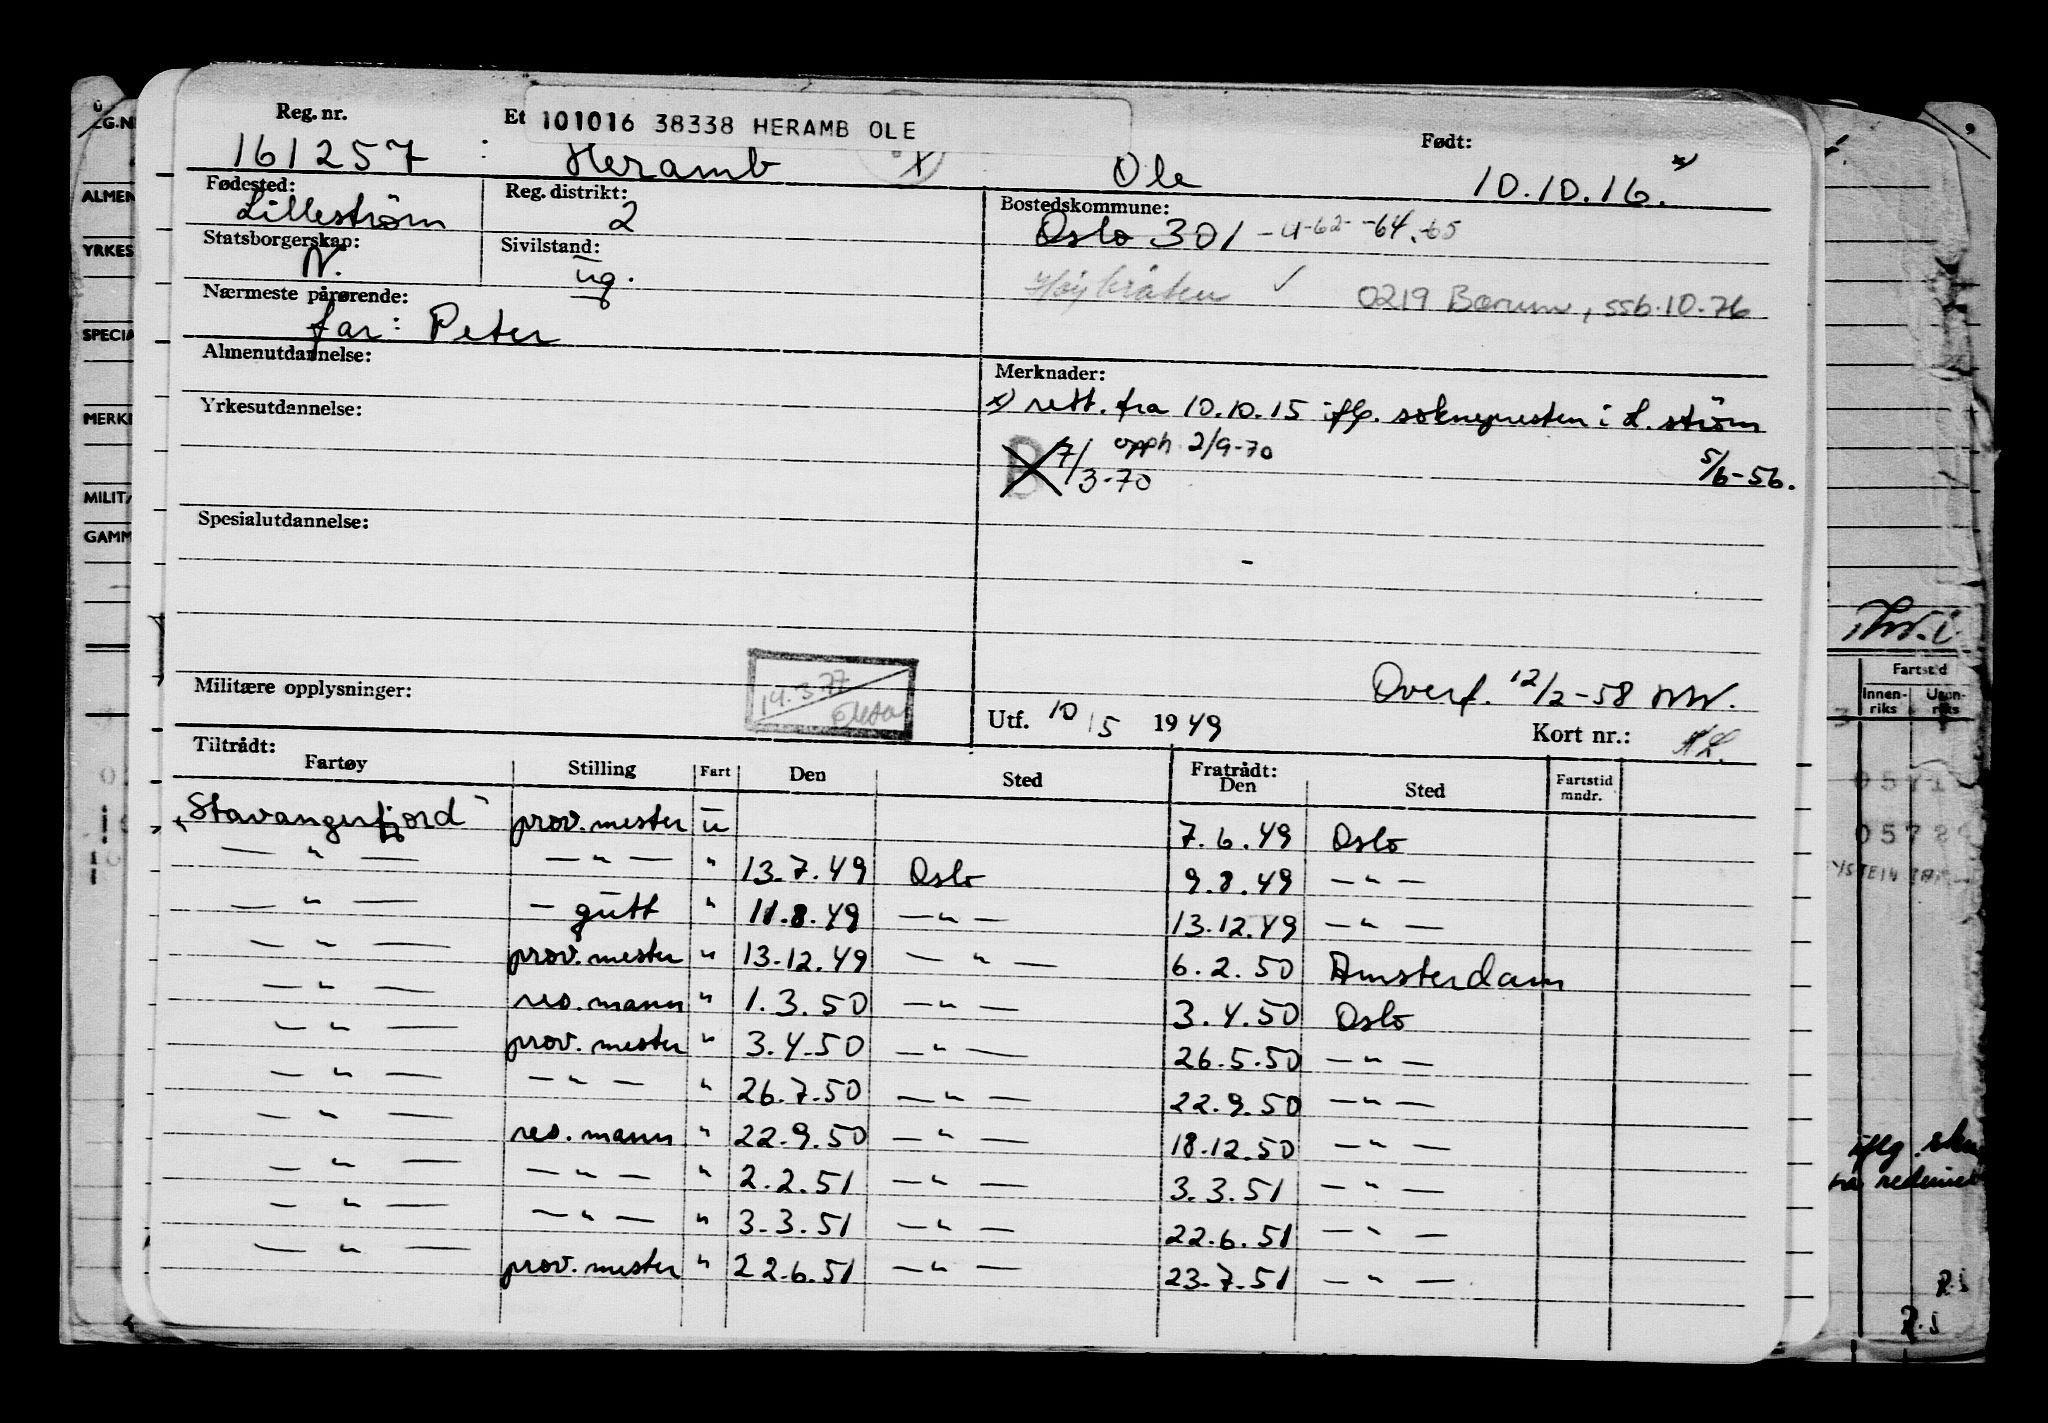 Reg. nr. Et 101016 38338 HERAMB OLE Født:
161257 Heramb x) Ole 10.10.16. x)
Fødested: Reg. distrikt: Bostedskommune:
Lilleström 2 Oslo 301 -4-62- -64.-65
Statsborgerskap: Sivilstand:
N. ug. Høybråten ✓ 0219 Bærum, ssb.10.76
Nærmeste pårørende:
far: Peter
Almenutdannelse: Merknader:
x) rett. fra 10.10.15 iflg. soknepresten i L. ström
Yrkesutdannelse: 5/6-56.
B 7/3-70 opph 2/9-70
Spesialutdannelse:
Militære opplysninger: 14.3.77
Overf. 12/2-58
Utf. 10/5 1949 Kort nr.:
Tiltrådt: Fratrådt: Fartstid
Fartøy Stilling Fart Den Sted Den Sted mndr.
"Stavangerfjord" prov. mester u 7.6.49 Oslo
— " — — " — " 13.7.49 Oslo 9.8.49 — " —
— " — — gutt " 11.8.49 — " — 13.12.49 — " —
— " — prov. mester " 13.12.49 — " — 6.2.50 Amsterdam
— " — res. mann " 1.3.50 — " — 3.4.50 Oslo
— " — prov. mester " 3.4.50 — " — 26.5.50 — " —
— " — — " — " 26.7.50 — " — 22.9.50 — " —
— " — res. mann " 22.9.50 — " — 18.12.50 — " —
— " — — " — " 2.2.51 — " — 3.3.51 — " —
— " — — " — " 3.3.51 — " — 22.6.51 — " —
— " — prov. mester " 22.6.51 — " — 23.7.51 — " —
ALMEN
YRKES
SPECIA
MERK
MILIT
GAMM
Fartstid
Innen-
riks